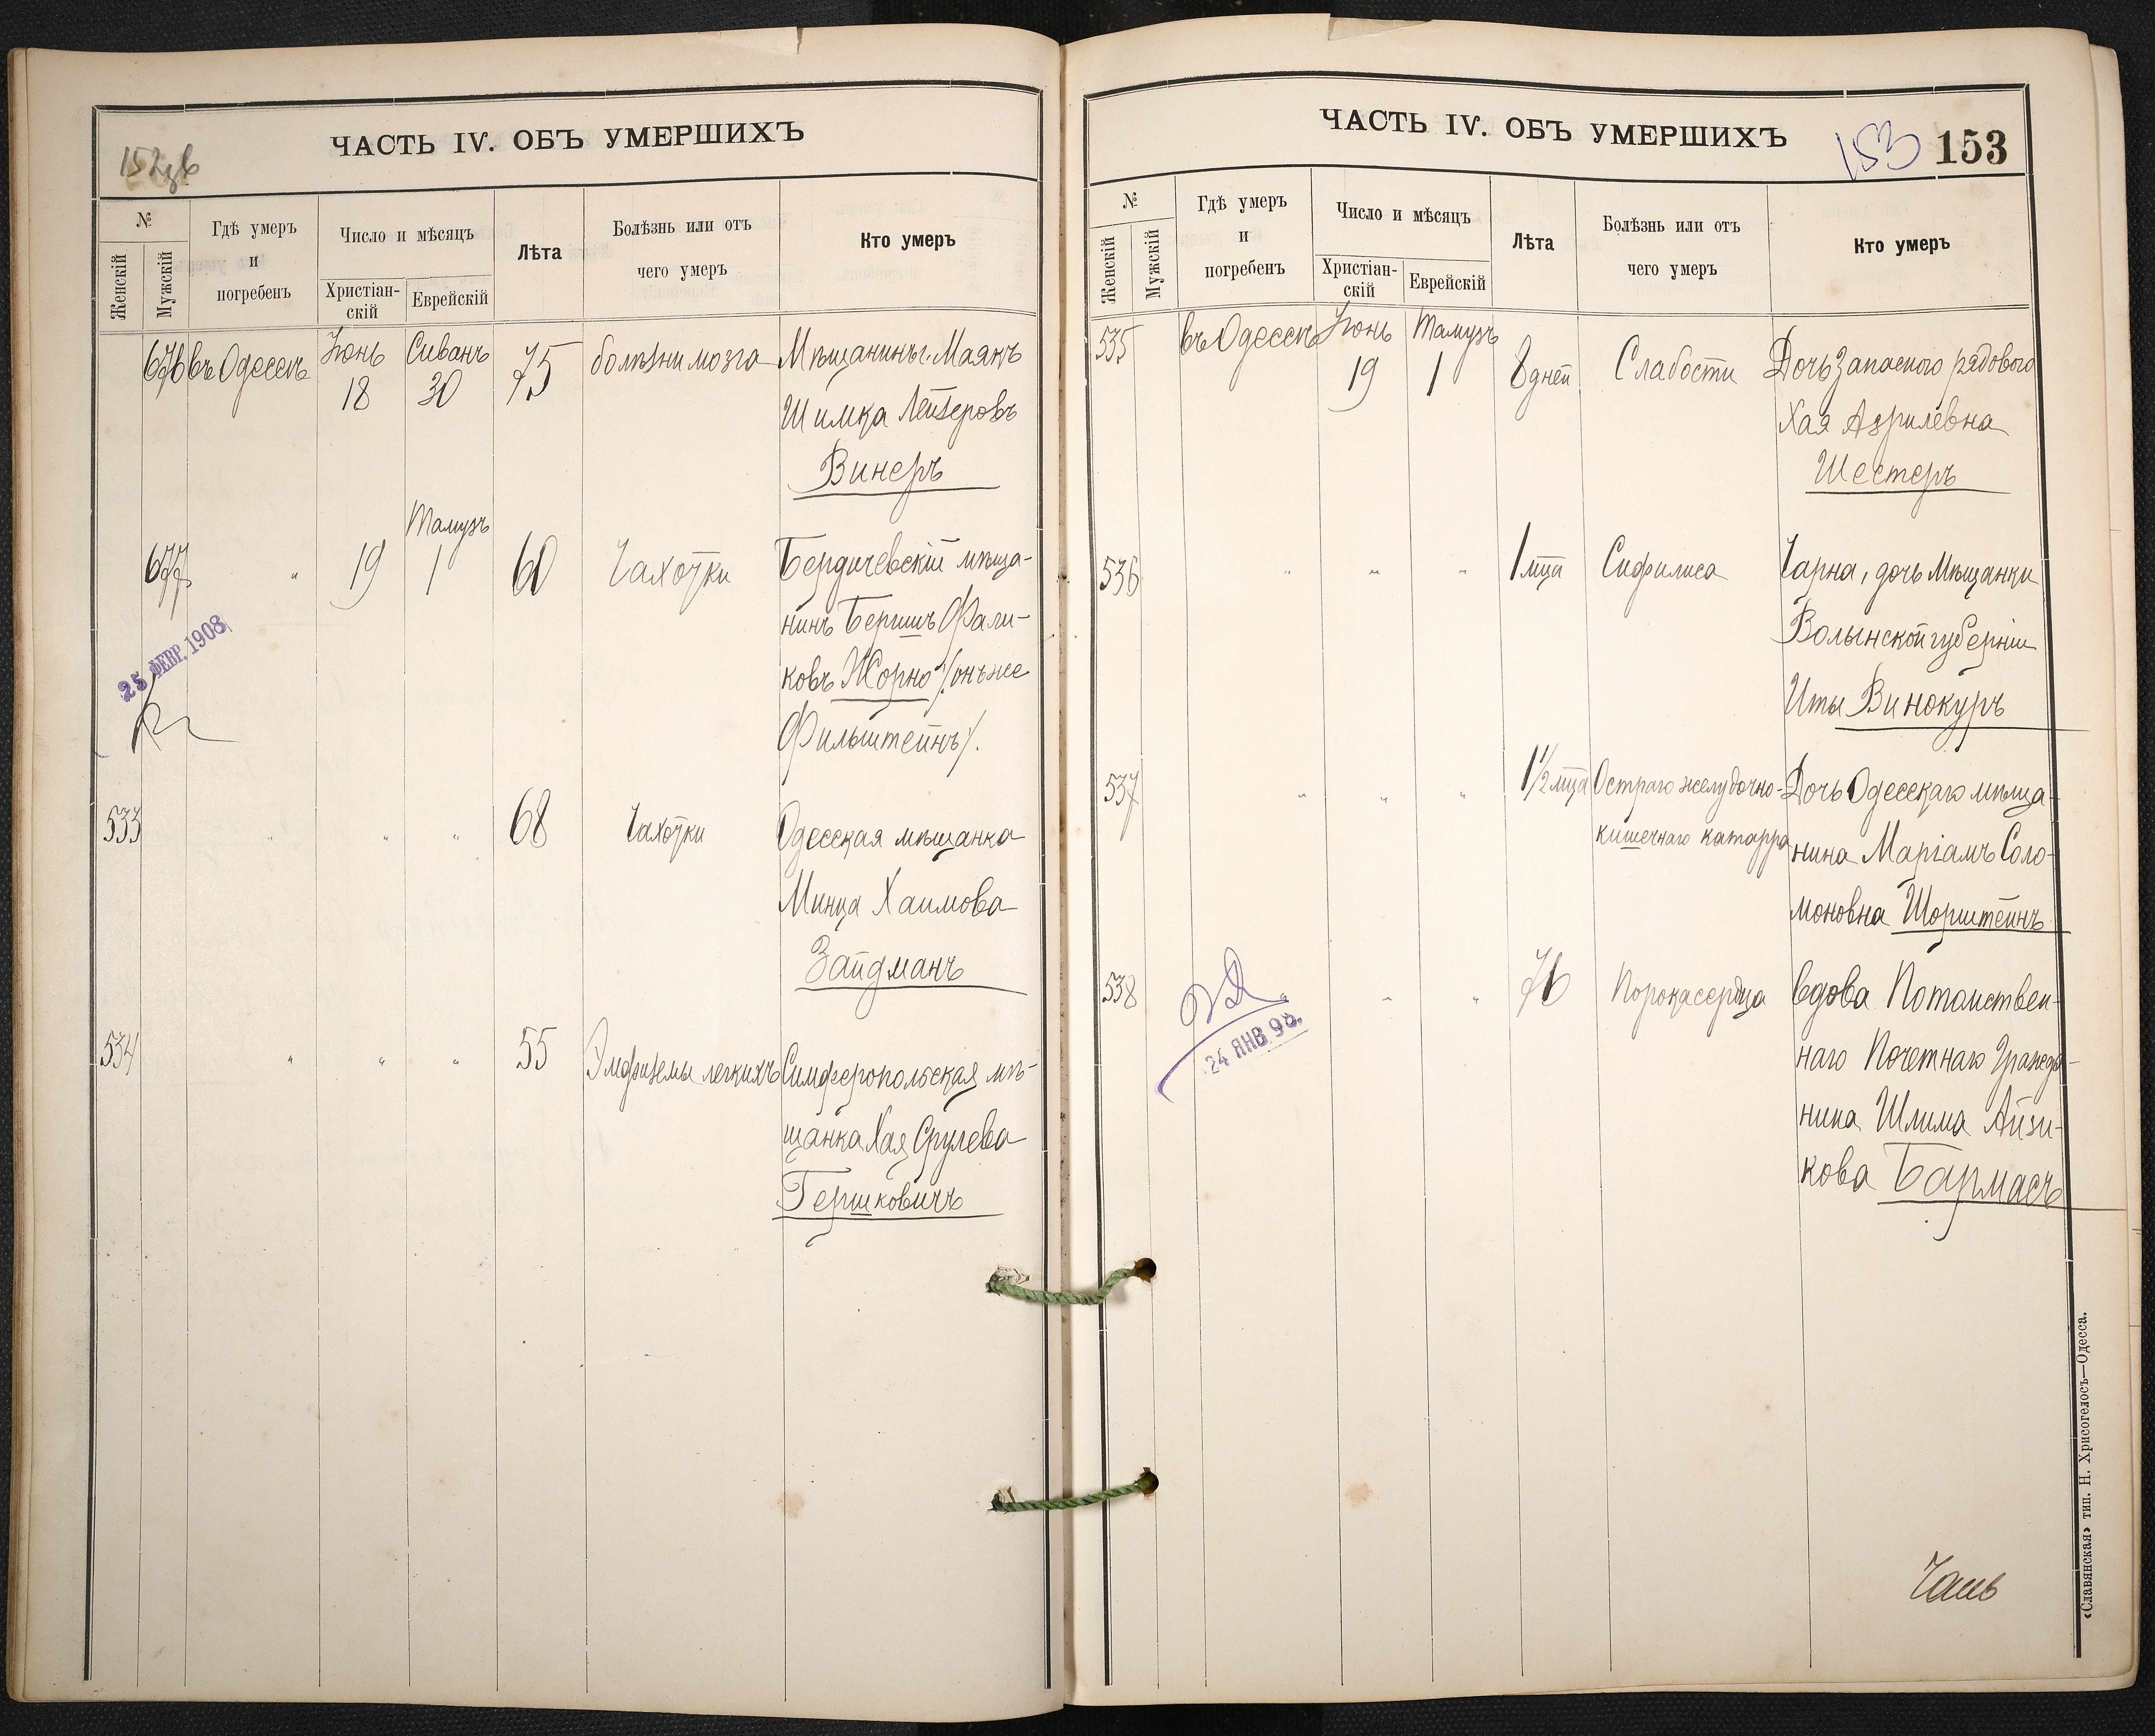 ЧАСТЬ IV. ОБЪ УМЕРШИХЪ
№
Женскій
Мужскій
Гдѣ умеръ
и
погребенъ
Число и мѣсяцъ
Христіан-
скій
Еврейскій
Лѣта
Болѣзнь или отъ
чего умеръ
Кто умеръ
676 въ Одессѣ Іюнь 18 Сиванъ 30 75 болѣзни мозга Мѣщанинъ г. Маякъ
Шимка Лейзеровъ
Винеръ
Тамузъ
677 " 19 1 60 Чахотки Бердичевскій мѣща-
нинъ Бершъ Фали-
ковъ Жорно /онъ же
Фильштейнъ/.
25 ФЕВР. 1908
533 " " " 68 Чахотки Одесская мѣщанка
Минца Хаимова
Зайдманъ
534 " " " 55 Эмфиземы легкихъ Симферопольская мѣ-
щанка Хая Срулева
Гершковичъ
ЧАСТЬ IV. ОБЪ УМЕРШИХЪ
153 153
№
Женскій
Мужскій
Гдѣ умеръ
и
погребенъ
Число и мѣсяцъ
Христіан-
скій
Еврейскій
Лѣта
Болѣзнь или отъ
чего умеръ
Кто умеръ
535 въ Одессѣ Іюнь 19 Тамузъ 1 8 дней Слабости Дочь Запасного рядового
Хая Азрилевна
Шестеръ
536 " " " 1 мца Сифилиса Чарна, дочь Мѣщанки
Волынской губерніи
Иты Винокуръ
537 " " " 1½ мца Остраго желудочно- Дочь Одесскаго мѣща-
кишечнаго катарра нина Маріамъ Соло-
моновна Шорштейнъ
538 " " " 76 Порока сердца Вдова Потомствен-
наго Почетнаго Гражда-
нина Шлима Айзи-
кова Бармасъ
24 ЯНВ 98.
«Славянская» тип. Н. Хрисогелосъ—Одесса.